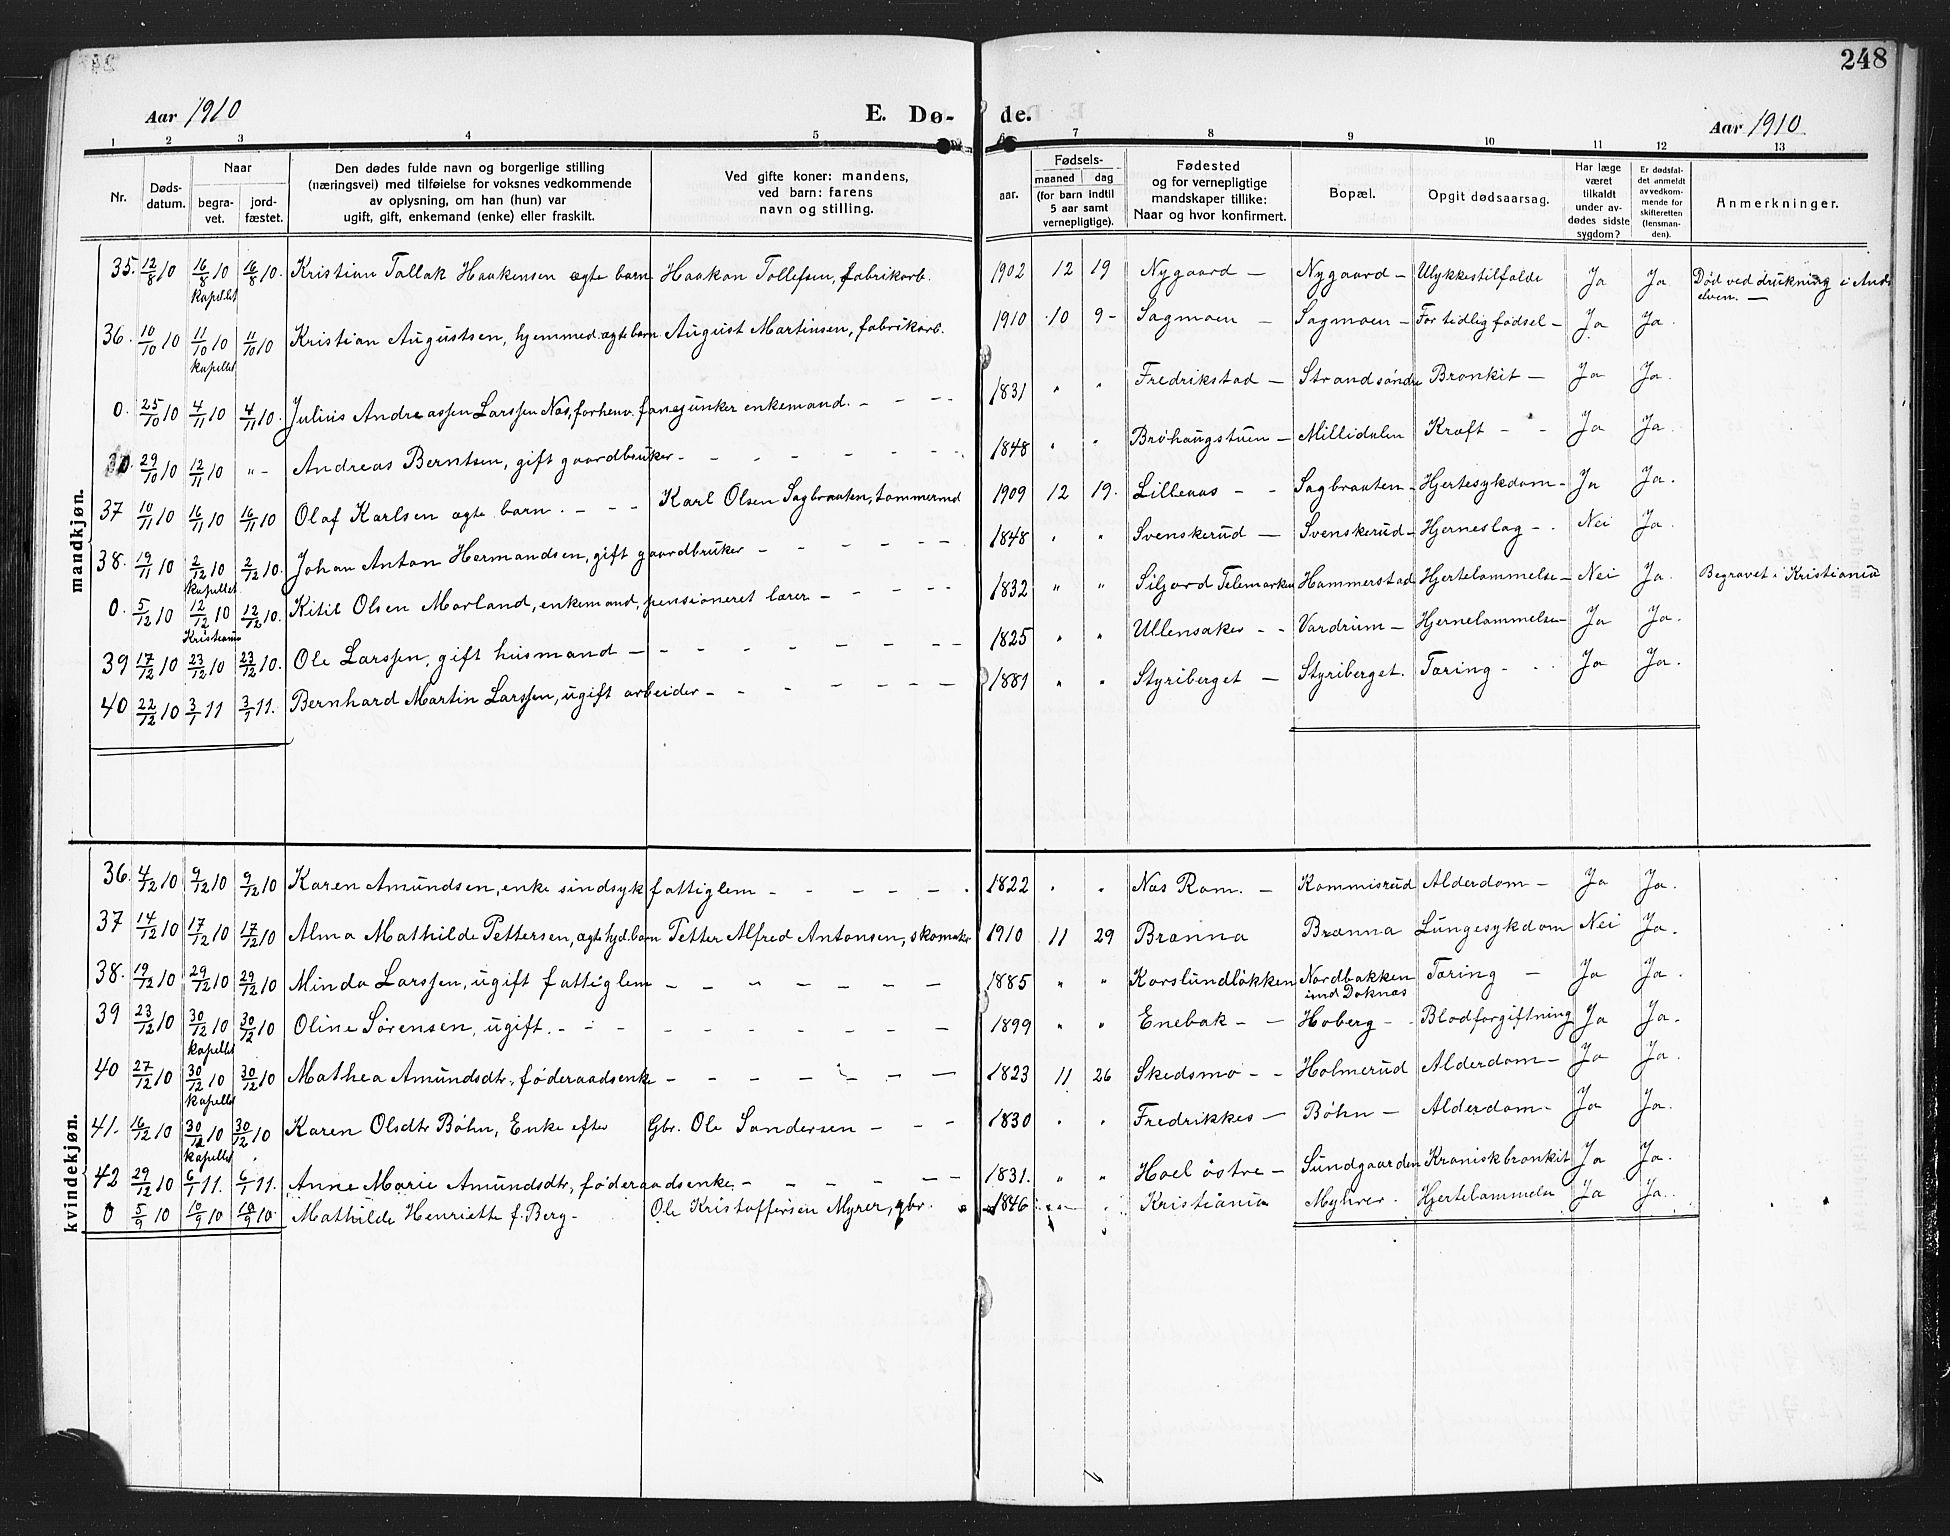 248
Aar 1910 E. Dø- de. Aar 1910
1 2 3 4 5 6 7 8 9 10 11 12 13
Nr. Døds-datum. Naar begra-vet. jord-fæstet. Den dødes fulde navn og borgerlige stilling (næringsvei) med tilføielse for voksnes vedkommende av oplysning, om han (hun) var ugift, gift, enkemand (enke) eller fraskilt. Ved gifte koner: mandens, ved barn: farens navn og stilling. aar. Fødsels- maaned dag (for barn indtil 5 aar samt vernepligtige). Fødested og for vernepligtige mandskaper tillike: Naar og hvor konfirmert. Bopæl. Opgit dødsaarsag. Har læge været tilkaldt under av-dødes sidste sygdom? Er dødsfal-det anmeldt av vedkom-mende for skifteretten (lensman-den). Anmerkninger.
mandkjøn.
35. 12/8 10 16/8 10 kapellet 16/8 10. Kristian Tallak Haakensen ægte barn Haakon Tollefsen, fabrikarb. 1902 12 19 Nygaard — Nygaard — Ulykkestilfælde Ja Ja Død ved drukning i And elven. —
36. 10/10 10 11/10 10 kapellet 11/10 10 Kristian Augustsen, hjemmed. ægte barn August Martinsen, fabrikarb. 1910 10 9 - Sagmoen — Sagmoen — For tidlig fødsel — Ja Ja.
0. 25/10 10 4/11 10 4/11 10. Julius Andreassen Larssen Næs, forhenv. fanejunker enkemand. - - - - 1831 " " Fredrikstad — Strand søndre Bronkit — Ja Ja.
0. 29/10 10 12/11 10 " - Andreas Berntsen, gift gaardbruker - - - - - - - 1848 " " Brøhaugstuen — Millidalen Kræft - - Ja Ja.
37 10/11 10 16/11 10 16/11 10 Olaf Karlsen ægte barn. - - - Karl Olsen Sagbraaten, tømmermd 1909 12 19. Lilleaas - - Sagbraaten - Hjertesykdom - Ja Ja.
38. 19/11 10 2/12 10 kapellet 2/12 10. Johan Anton Hermandsen, gift gaardbruker - - - - - - 1848 " " Svenskerud — Svenskerud - Hjerneslag - . Nei Ja.
0. 5/12 10 12/12 10 Kristiania 12/12 10. Kitil Olsen Morland, enkemand, pensioneret lærer - - - - - - 1832 " " Siljord Telemarken Hammerstad Hjertelammelse - Nei Ja. Begravet i Kristiania
39 17/12 10 23/12 10 23/12 10. Ole Larssen, gift husmand - - - - - - - - 1825 " " Ullensaker - - Vardrum - Hjernelammelse - Ja Ja.
40 22/12 10 3/1 11 3/1 11. Bernhard Martin Larssen, ugift arbeider - - - - - - - 1881 " " Styriberget — Styriberget. Tæring - . . Ja Ja.
kvindekjøn.
36. 4/12 10 9/12 10 9/12 10 Karen Amundsen, enke sindsyk fattiglem - - - - - . 1822 " " Næs Rom. — Kommisrud Alderdom - Ja Ja.
37 14/12 10 17/12 10 17/12 10 Alma Mathilde Pettersen, ægte hjd. barn Petter Alfred Antonsen, skomaker 1910 11 29 Brænna Brænna Lungesykdom Nei Ja.
38. 19/12 10 29/12 10 29/12 10 Minda Larssen, ugift fattiglem - - - - - - 1885 " " Korslundløkken Nordbakken Tæring - Ja Ja.
39 23/12 10 30/12 10 kapellet 30/12 10 Oline Sørensen, ugift. - - - - - - - - - 1899 " " Enebak - - Hoberg - - Blodforgiftning Ja Ja.
40 27/12 10 30/12 10 kapellet 30/12 10 Mathea Amundsdtr, føderaadsenke - - - - - - - 1823 11 26 Skedsmo - - Holmerud Alderdom - Ja Ja.
41. 16/12 10 30/12 10 kapellet 30/12 10 Karen Olsdtr Bøhn, Enke efter Gbr. Ole Sandersen - - - 1830 " " Fredrikkes - Bøhn - Alderdom - Ja Ja.
42 29/12 10 6/1 11. 6/1 11. Anne Marie Amundsdtr, føderaadsenke - - - - - - 1831. " " Hoel østre - Sundgaarden Kroniskbronkit Ja Ja.
0 5/9 10 10/9 10 10/9 10. Mathilde Henriette f. Berg - Ole Kristoffersen Myrer, gbr. 1846 " " Kristiania Myhrer. Hjertelammelse Ja Ja.